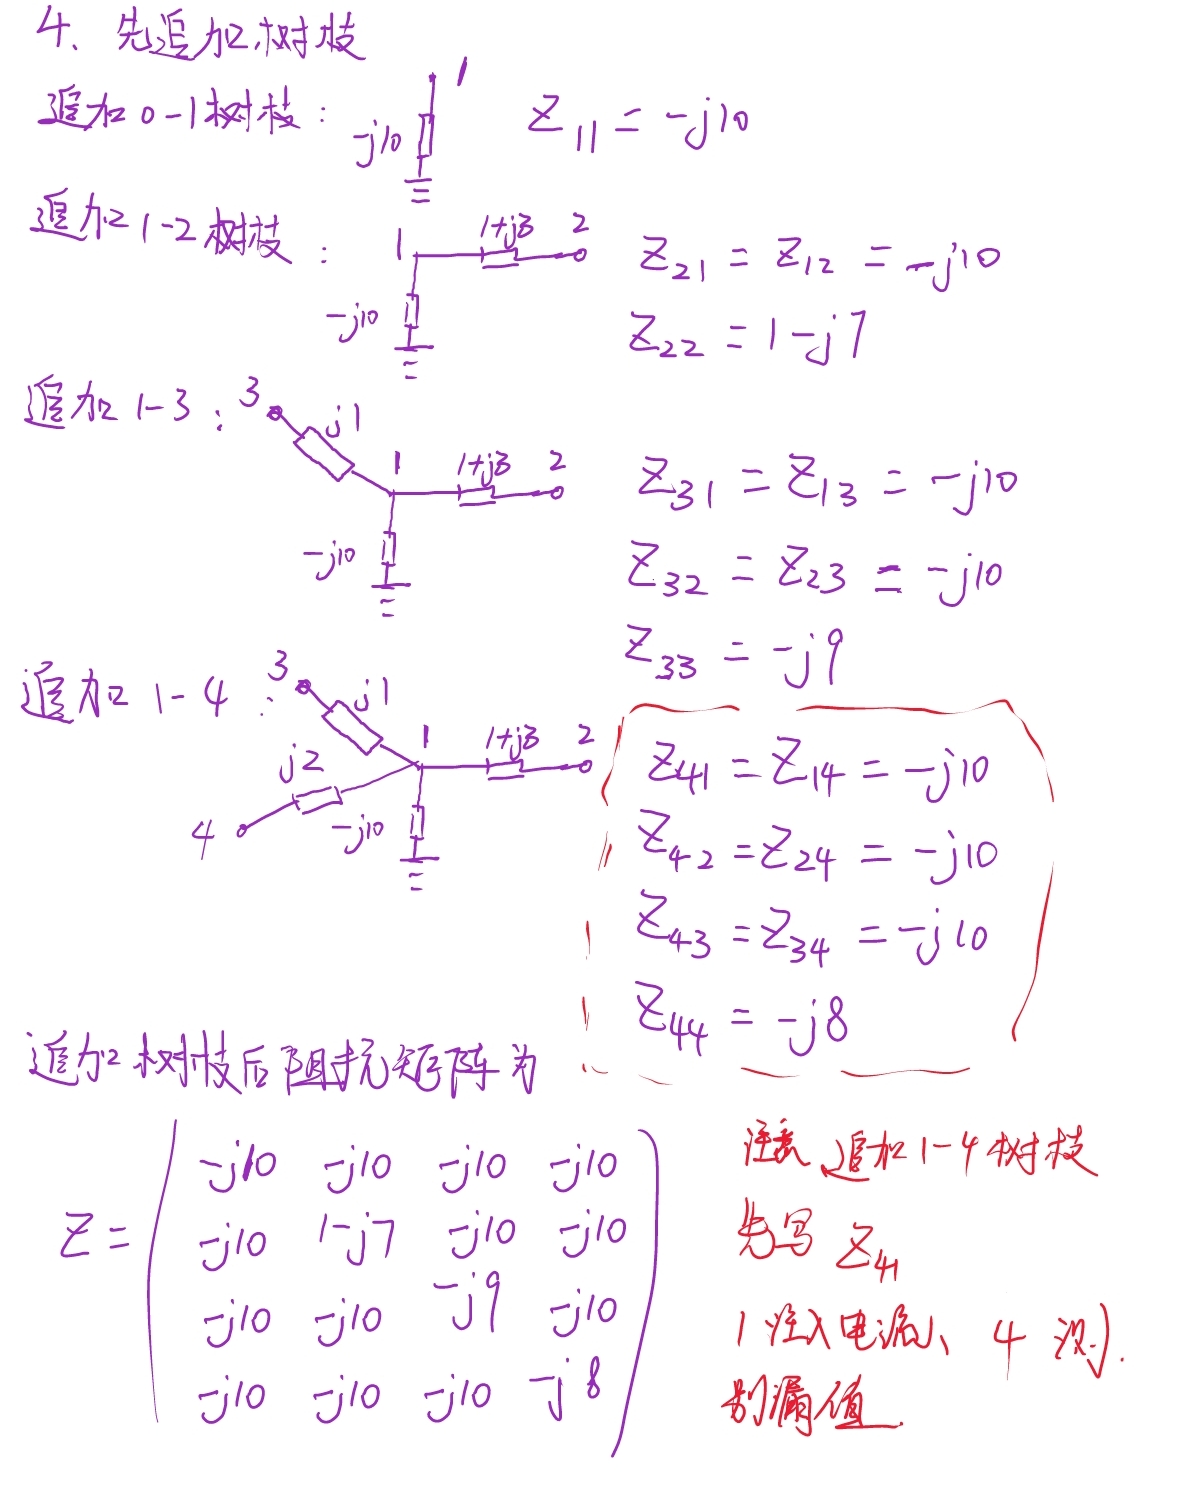 4、先追加树枝
追加0-1树枝：
1
-j10
Z11 = -j10
追加1-2树枝：
1 1+j3 2
-j10
Z21 = Z12 = -j10
Z22 = 1-j7
追加1-3：
3 j1
1 1+j3 2
-j10
Z31 = Z13 = -j10
Z32 = Z23 = -j10
Z33 = -j9
追加1-4：
3 j1
j2 1 1+j3 2
4 -j10
Z41 = Z14 = -j10
Z42 = Z24 = -j10
Z43 = Z34 = -j10
Z44 = -j8
追加树枝后阻抗矩阵为
Z =
-j10 -j10 -j10 -j10
-j10 1-j7 -j10 -j10
-j10 -j10 -j9 -j10
-j10 -j10 -j10 -j8
注意 追加1-4树枝
先写 Z41
1注入电流、4测.
别漏值